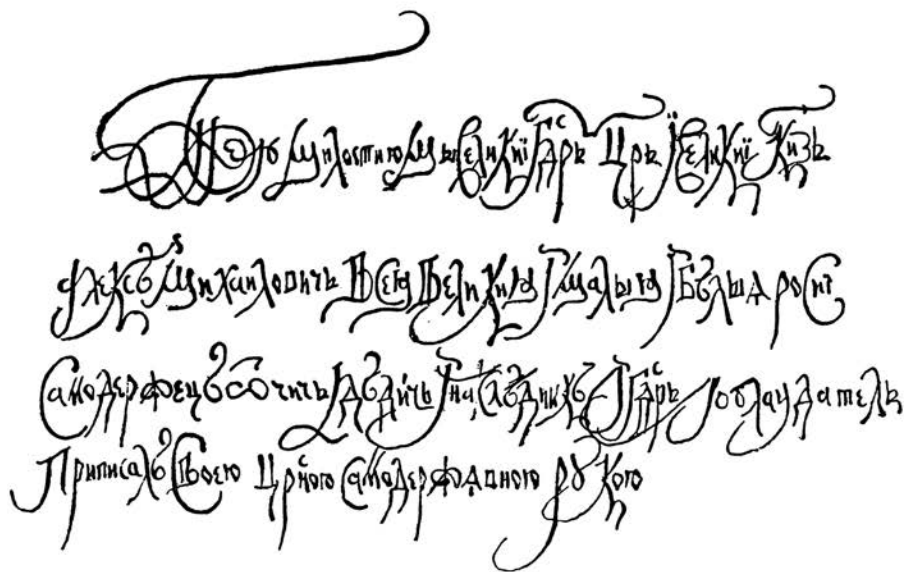 Бжєю милостию мы великиї гдрь црь ї великиї кнзь
Алексѣй михаиловичь всеꙗ великиꙗ ї малыꙗ ї бѣлыꙗ росиї
самодержецъ отчичь ї дѣдичь ї наслѣдникъ ї гдрь ї обладатель
приписалъ своею цркою самодержавною рꙋкою